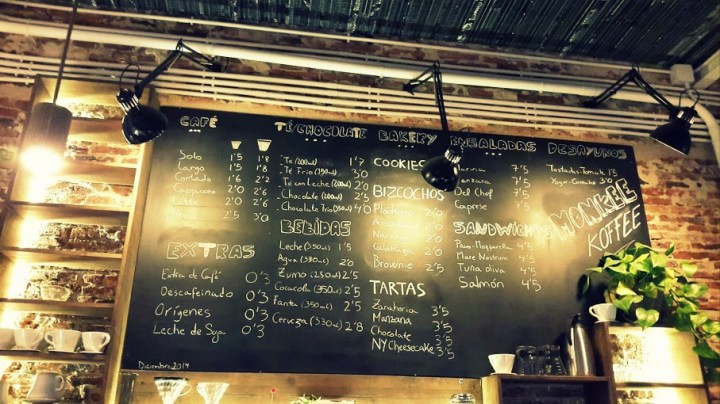 CAFÉ
Solo 1'5 1'8
Largo 1'5 1'8
Cortado 1'6 2'2
Cappuccino 2'0 2'6
2'0
2'5 3'0
EXTRAS
Extra de Café 0'3
Descafeinado 0'3
Orígenes 0'3
Leche de Soja 0'3
Diciembre 2014
TÉ/CHOCOLATE
Té (200ml) 1'7
Té Frío (350ml) 3'0
Té con Leche (200ml) 2'0
Chocolate (200ml) 2'5
Chocolate Frío (350ml) 4'0
BEBIDAS
Leche (350ml) 1'5
Agua (330ml) 2'0
Zumo (250ml) 2'5
Cocacola (350ml) 2'5
Fanta (350ml) 2'5
Cerveza (330ml) 2'8
BAKERY
COOKIES
BIZCOCHOS
Brownie 2'5
TARTAS
Zanahoria 3'5
Manzana 3'5
Chocolate 3'5
NY Cheesecake 3'5
ENSALADAS
7'5
7'5
Del Chef 7'5
Caprese 7'5
SANDWICHES
Pavo-Mozzarella 4'5
Mare Nostrum 4'5
Tuna oliva 4'5
Salmón 4'5
DESAYUNOS
Tostadas Tomate 1'5
Yogur-Granola 3'0
MONKEE
KOFFEE